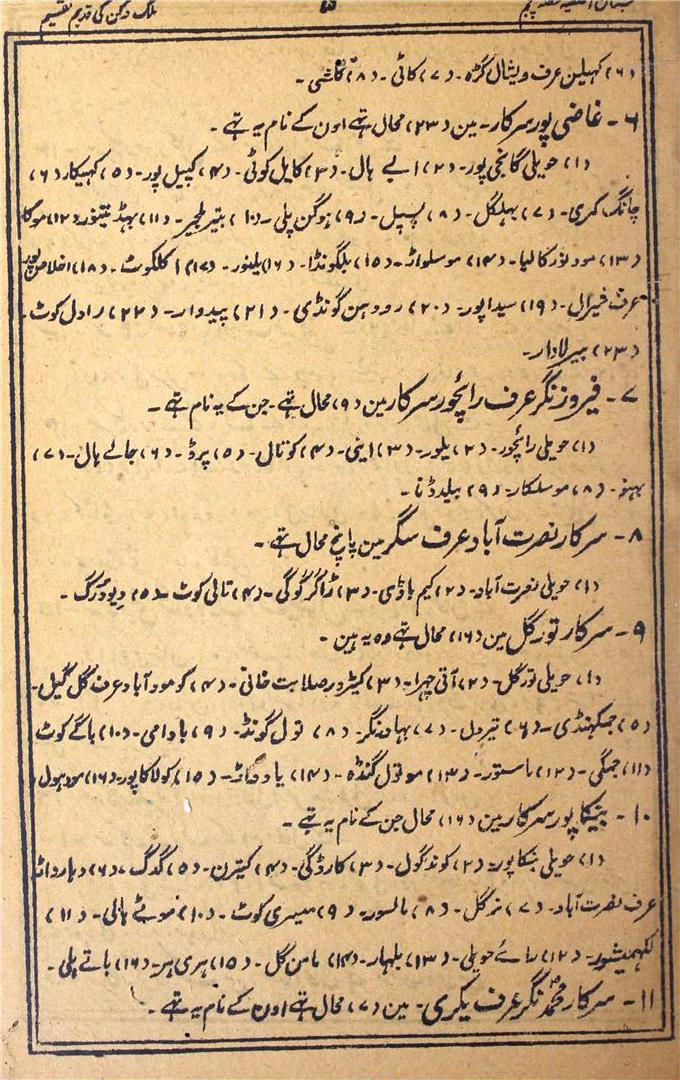 ملک دکن کی قدیم تقسیم ۵
(۶) کہیلن عرف ویشال گڑہ۔ (۷) کاٹی۔ (۸) کاشی۔
۶۔ غاضی پور سرکار۔ مین (۲۳) محال تہے اون کے نام یہ تہے۔
(۱) حویلی گانجی پور۔ (۲) ابے ہال۔ (۳) کایل کوٹی۔ (۴) کپیل پور۔ (۵) کہیکار (۶)
چانگ کمری۔ (۷) بہلگل۔ (۸) پسپل۔ (۹) ہوگن پلی۔ (۱۰) (۱۱) (۱۲) موکا
(۱۳) مودلور کالیا۔ (۱۴) موسلواڑ۔ (۱۵) بلگونڈا۔ (۱۶) یلنور۔ (۱۷) کلکوٹ۔ (۱۸) اخلاص پور
عرف فیرال۔ (۱۹) سیداپور۔ (۲۰) رودہن گونڈی۔ (۲۱) پیدوار۔ (۲۲) رادل کوٹ۔
(۲۳) بیرلادار۔
۷۔ فیروزنگر عرف رائچور سرکار مین (۹) محال تہے۔ جن کے یہ نام تہے۔
(۱) حویلی رائچور۔ (۲) یلور۔ (۳) اینی۔ (۴) کوتال۔ (۵) پرڈ۔ (۶) جائے ہال۔ (۷)
(۸) موسلکار۔ (۹) بیلدڈنا۔
۸۔ سرکار نصرت آباد عرف سگر مین پانچ محال تہے۔
(۱) حویلی نصرت آباد۔ (۲) کیم باڈی۔ (۳) ڑاگرگوگی۔ (۴) تالی کوٹ۔ (۵) دیودرگ۔
۹۔ سرکار تورگل مین (۱۶) محال تہے وہ یہ ہین۔
(۱) حویلی تورگل۔ (۲) آتی چہرا۔ (۳) کیٹرور صلابت خانی۔ (۴) کومودآباد عرف گل گیل۔
(۵) جمکہنڈی۔ (۶) تیردل۔ (۷) بہادرنگر۔ (۸) تول گونڈ۔ (۹) باوامی۔ (۱۰) باگے کوٹ
(۱۱) جمگی۔ (۱۲) ماستور۔ (۱۳) موتول گنڈہ۔ (۱۴) یادواڑ۔ (۱۵) کولاکاپور۔ (۱۶) مودہول
۱۰۔ بنیکاپور سرکار مین (۱۶) محال جن کے نام یہ تہے۔
(۱) حویلی بنکاپور۔ (۲) کوندگول۔ (۳) کارڈگی۔ (۴) کیترن۔ (۵) گدگ۔ (۶) دہارواڑ
عرف نصرت آباد۔ (۷) نرگل۔ (۸) مالسور۔ (۹) میسری کوٹ۔ (۱۰) موبے ہالی۔ (۱۱)
لکہمیشور۔ (۱۲) رائے حویلی۔ (۱۳) بلہار۔ (۱۴) مامن گل۔ (۱۵) ہری ہر۔ (۱۶) باتے پلی۔
۱۱۔ سرکار محمد نگر عرف یکری۔ مین (۷) محال تہے اون کے نام یہ تہے۔